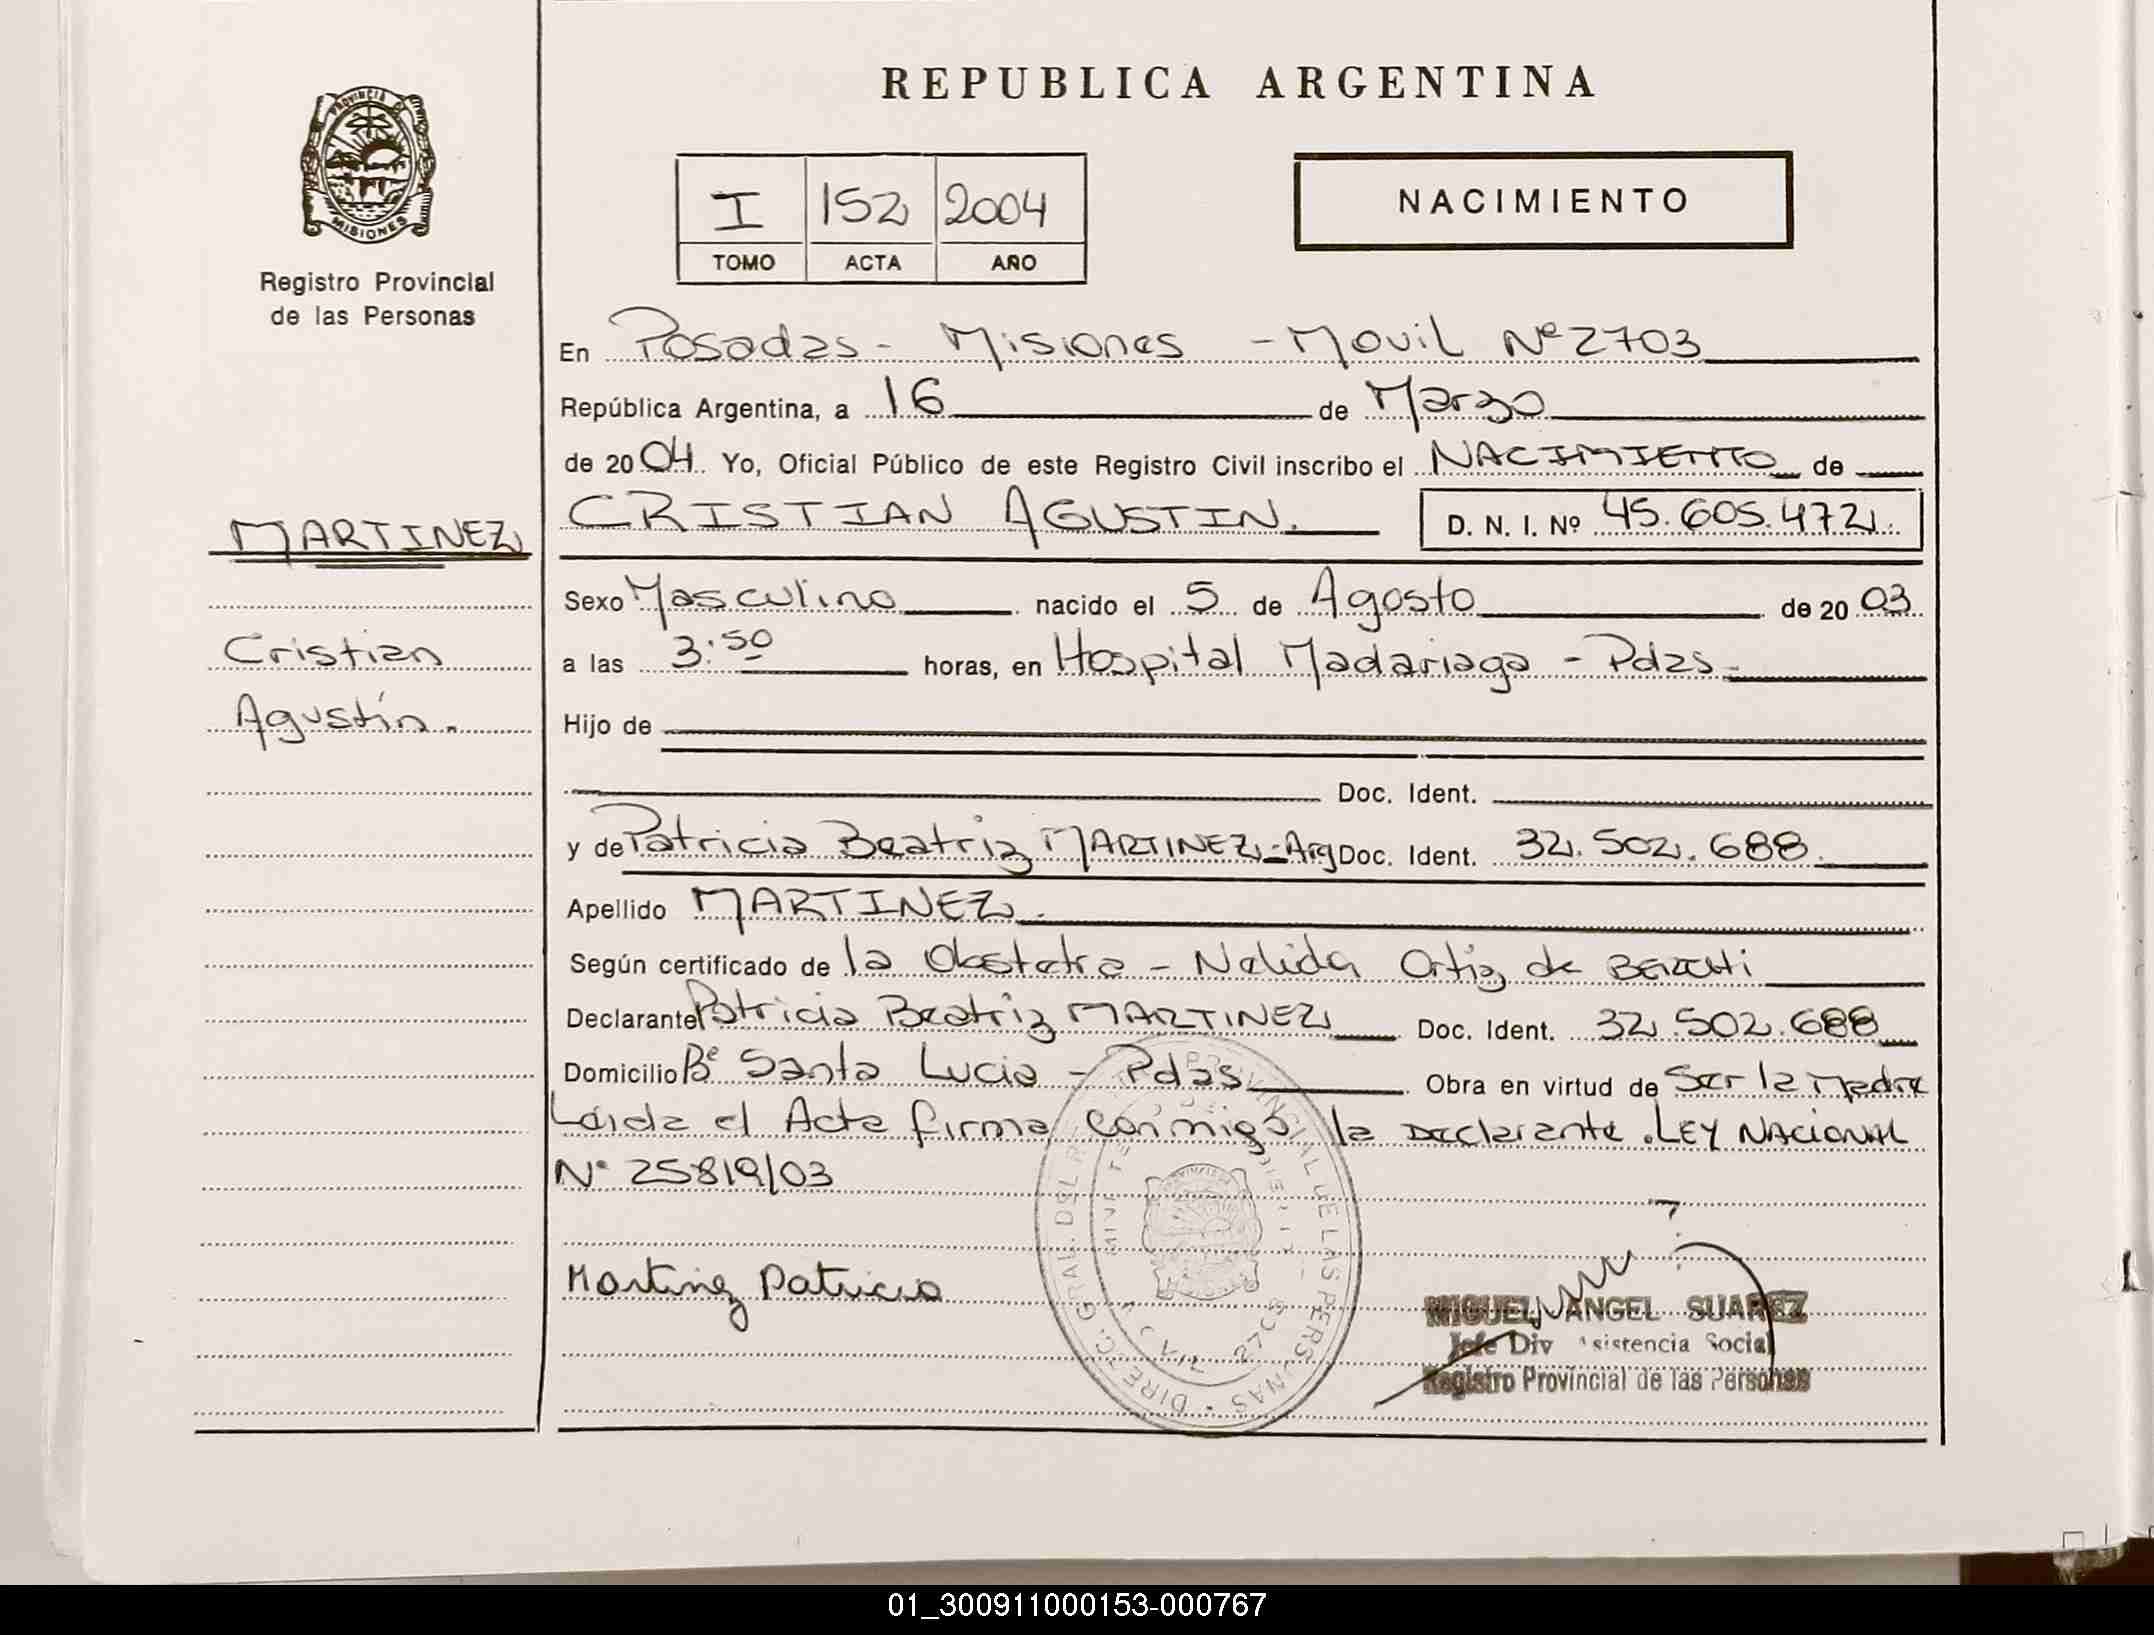 REPUBLICA ARGENTINA
PROVINCIA DE
MISIONES
Registro Provincial
de las Personas
I 152 2004
TOMO ACTA AÑO
NACIMIENTO
En Posadas - Misiones - Movil Nº 2703
República Argentina, a 16 de Marzo
de 2004. Yo, Oficial Público de este Registro Civil inscribo el NACIMIENTO de
CRISTIAN AGUSTIN. D. N. I. Nº 45.605.472.
MARTINEZ
Sexo Masculino nacido el 5 de Agosto de 2003
Cristian
a las 3:50 horas, en Hospital Madariaga - Pdas.
Agustín.
Hijo de
Doc. Ident.
y de Patricia Beatriz MARTINEZ - Arg Doc. Ident. 32.502.688.
Apellido MARTINEZ.
Según certificado de la Obstetra - Nelida Ortiz de
Declarante Patricia Beatriz MARTINEZ Doc. Ident. 32.502.688
Domicilio Bº Santa Lucia - Pdas Obra en virtud de Ser la Madre
Leida el Acta firma conmigo la Declarante. LEY NACIONAL
Nº 25819/03
Martinez Patricia
MIGUEL ANGEL SUAREZ
Jefe Div Asistencia Social
Registro Provincial de las Personas
01_300911000153-000767